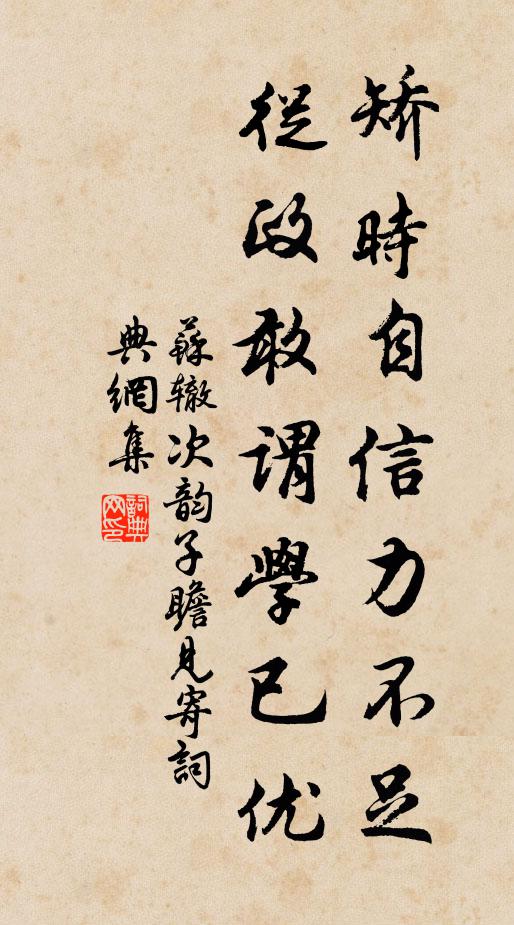 矫時自信力不足
從政敢謂學已优
蘇辙次韵子瞻見寄詞
典網集
詞典網印